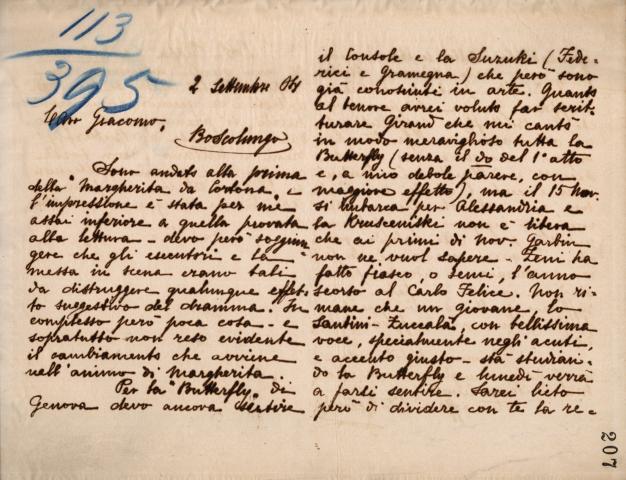 113
395
2 Settembre 04
Caro Giacomo,
Boscolungo
Sono andato alla prima
della "Margherita da Cortona" e
l'impressione è stata per me
assai inferiore a quella provata
alla lettura - devo però soggiun
gere che gli esecutori e la
messa in scena erano tali
da distruggere qualunque effet-
to suggestivo del dramma. In
complesso però poca cosa - e
sopratutto non reso evidente
il cambiamento che avviene
nell'animo di Margherita.
Per la "Butterfly" di
Genova devo ancora sentire
il Console e la Suzuki (Fede-
rici e Gramegna) che però sono
già conosciuti in arte. Quanto
al tenore avrei voluto far scrit-
turare Giraud che mi cantò
in modo meraviglioso tutta la
Butterfly (senza il do del 1° atto
e, a mio debole parere, con
maggiore effetto), ma il 15 Nov.
si imbarca per Alessandria e
la Krusceniski non è libera
che ai primi di Nov. Garbin
non ne vuol sapere - Zeni ha
fatto fiasco, o semi, l'anno
scorso al Carlo Felice. Non ri-
mane che un giovane, lo
Santini-Zuccala, con bellissima
voce, specialmente negli acuti,
e accento giusto - sta studian-
do la Butterfly e lunedì verrà
a farsi sentire. Sarei lieto
però di dividere con te la re-
207